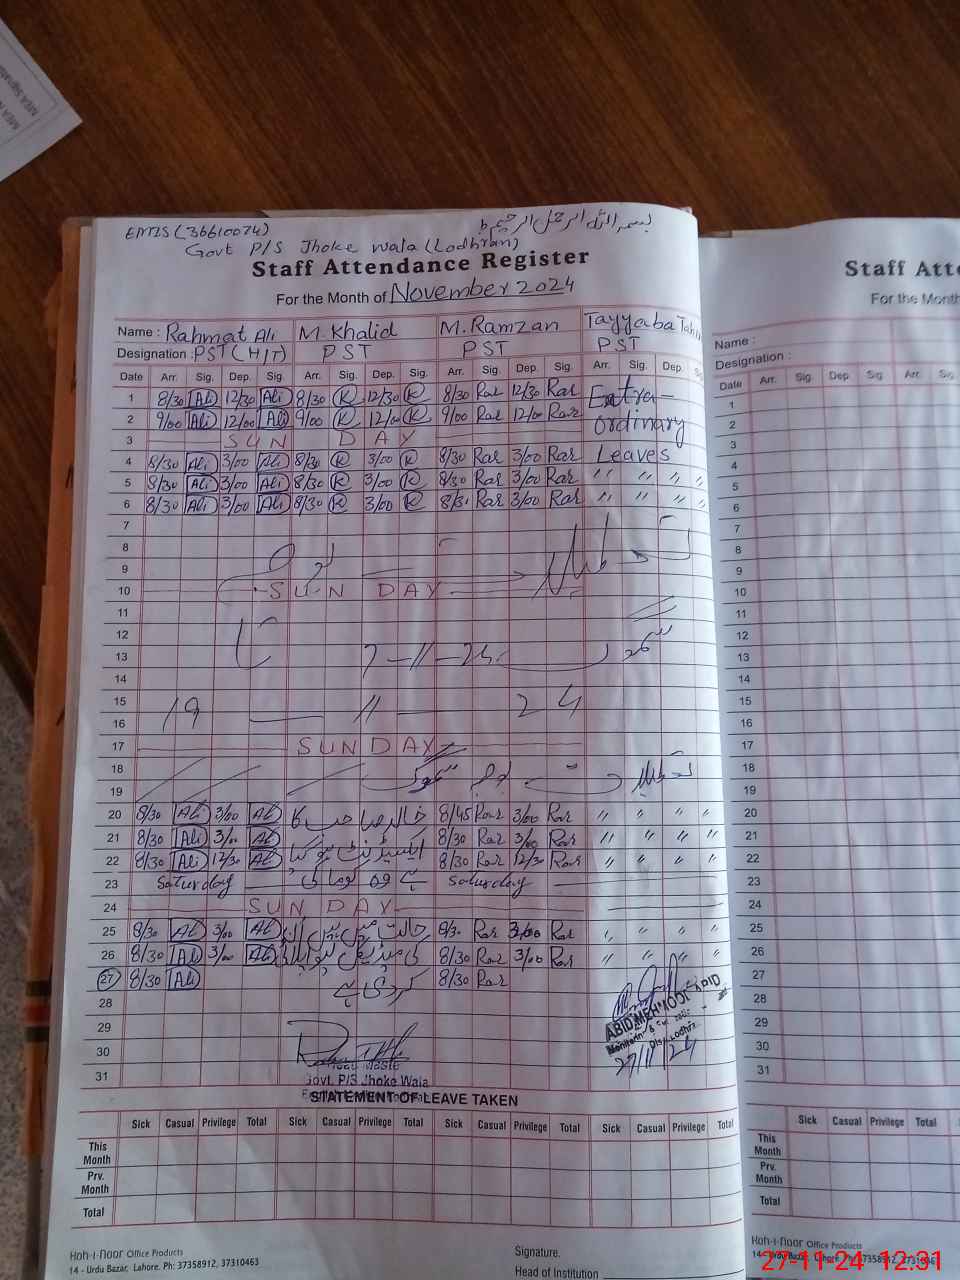 EMIS (36610074)
بسم اللہ الرحمن الرحیم
Govt P/S Jhoke wala (Lodhran)
Staff Attendance Register
For the Month of November 2024
Name : Rahmat Ali M. Khalid M. Ramzan Tayyaba Tahir
Designation : PST (H/T) PST PST PST
Date Arr. Sig. Dep. Sig. Arr. Sig. Dep. Sig. Arr. Sig. Dep. Sig. Arr. Sig. Dep.
1 8/30 Ali 12/30 Ali 8/30 K 12/30 K 8/30 Rar 12/30 Rar Extra-
2 9/00 Ali 12/00 Ali 9/00 K 12/00 K 9/00 Rar 12/00 Rar ordinary
3 SUN DAY
4 8/30 Ali 3/00 Ali 8/30 K 3/00 K 8/30 Rar 3/00 Rar Leaves
5 8/30 Ali 3/00 Ali 8/30 K 3/00 K 8/30 Rar 3/00 Rar " " " "
6 8/30 Ali 3/00 Ali 8/30 K 3/00 K 8/30 Rar 3/00 Rar " " " "
7
8
9
10 SUN DAY
11
12
13 7-11-24 تا
14
15
16 19 — 11 — 24
17 SUNDAY
18
19
20 8/30 Ali 3/00 Ali خالد صاحب کا 8/45 Rar 3/00 Rar " " " "
21 8/30 Ali 3/00 Ali ایکسیڈنٹ ہو گیا 8/30 Rar 3/00 Rar " " " "
22 8/30 Ali 12/30 Ali ہے وہ 8/30 Rar 12/30 Rar " " " "
23 Saturday Saturday
24 SUN DAY
25 8/30 Ali 3/00 Ali حالت میں ہیں ان 8/30 Rar 3/00 Rar " " " "
26 8/30 Ali 3/00 Ali کی 8/30 Rar 3/00 Rar " " " "
27 8/30 Ali کر دی ہے 8/30 Rar
28
29
30
31
ABID MEHMOOD
27/11/24
Govt. P/S Jhoke Wala
STATEMENT OF LEAVE TAKEN
Sick Casual Privilege Total Sick Casual Privilege Total Sick Casual Privilege Total Sick Casual Privilege Total
This Month
Prv. Month
Total
Koh-i-noor Office Products
14 - Urdu Bazar, Lahore. Ph: 37358912, 37310463
Signature.
Head of Institution
Staff Atte
For the Month
Name :
Designation :
Date Arr. Sig. Dep. Sig. Arr. Sig.
1
2
3
4
5
6
7
8
9
10
11
12
13
14
15
16
17
18
19
20
21
22
23
24
25
26
27
28
29
30
31
Sick Casual Privilege Total
This Month
Prv. Month
Total
Koh-i-noor Office Products
14 - Urdu Bazar, Lahore. Ph: 37358912, 37310463
27-11-24 12:31